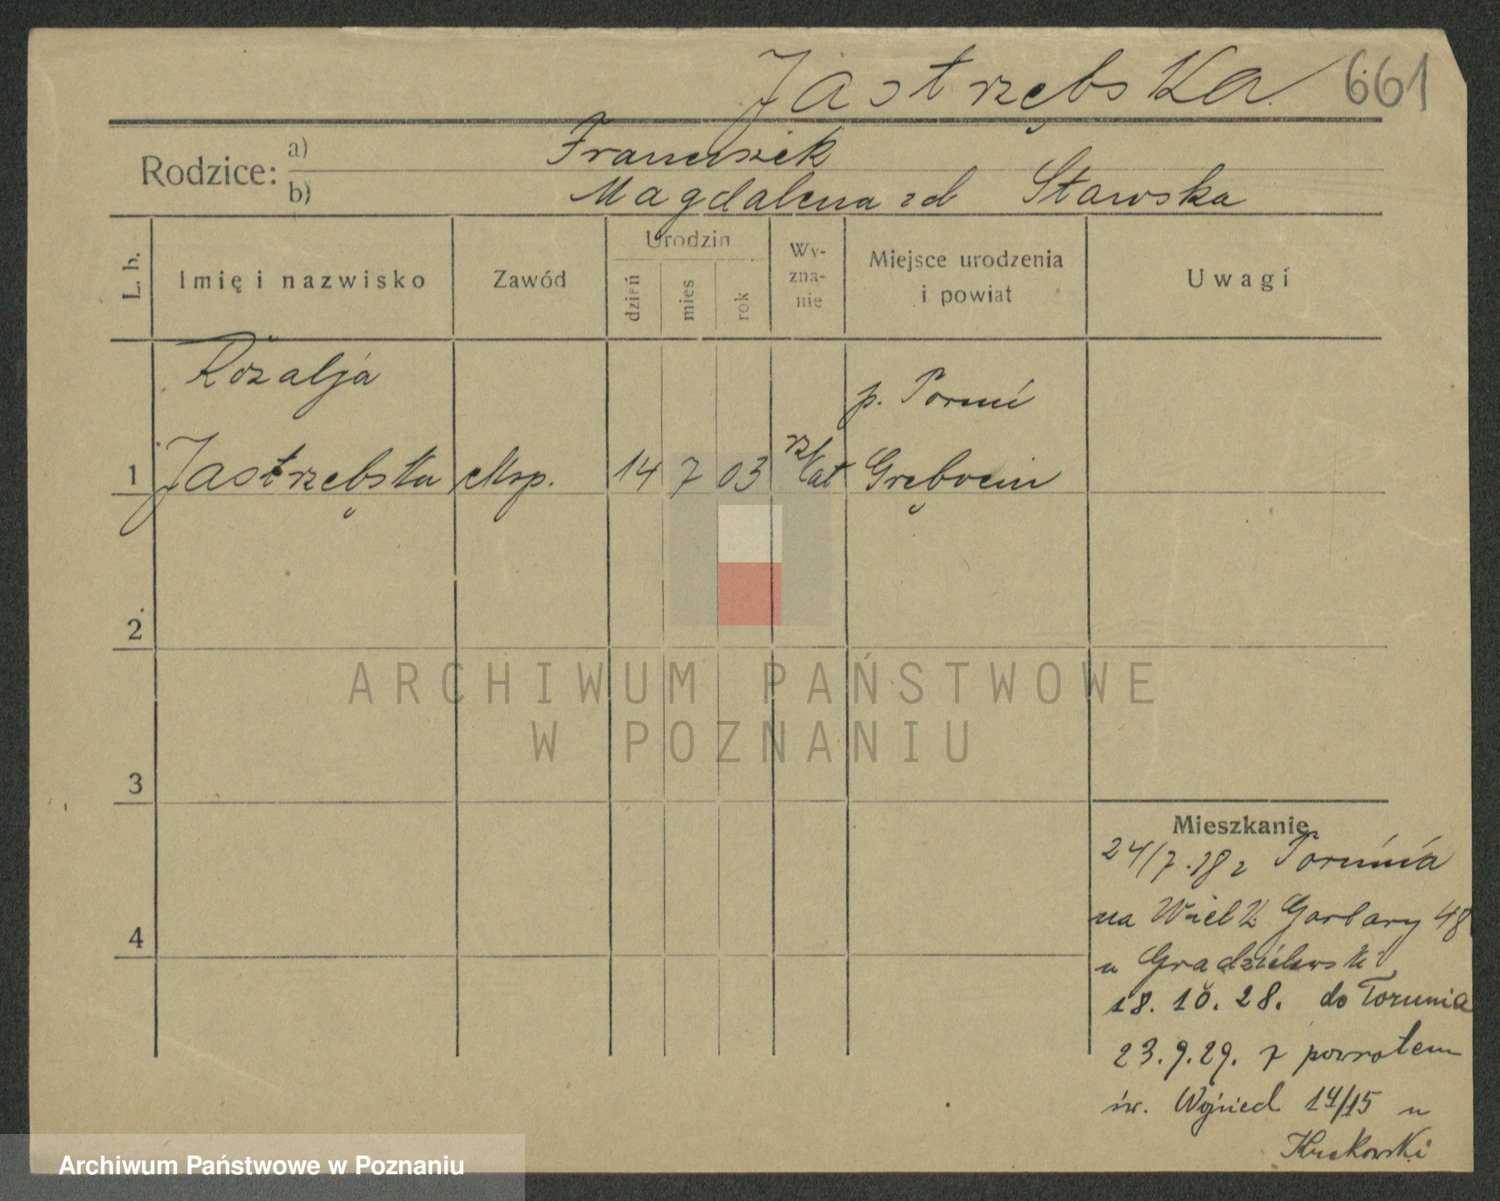 Jastrzębska 661
Rodzice:
a) Franciszek
b) Magdalena zd Stawska
L. b.
Imię i nazwisko
Zawód
Urodzin
dzień
mies
rok
Wy-
zna-
nie
Miejsce urodzenia
i powiat
Uwagi
Rozalja
p. Toruń
1 Jastrzębska 14 7 03 rz kat Grębocin
2
3
4
Mieszkanie
24/7.28 z Torunia
na Wielk. Garbary 48
u Grądzielewski
18. 10. 28. do Torunia
23. 9. 29. z powrotem
św. Wojciech 14/15 u
Krakowski
ARCHIWUM PAŃSTWOWE
W POZNANIU
Archiwum Państwowe w Poznaniu